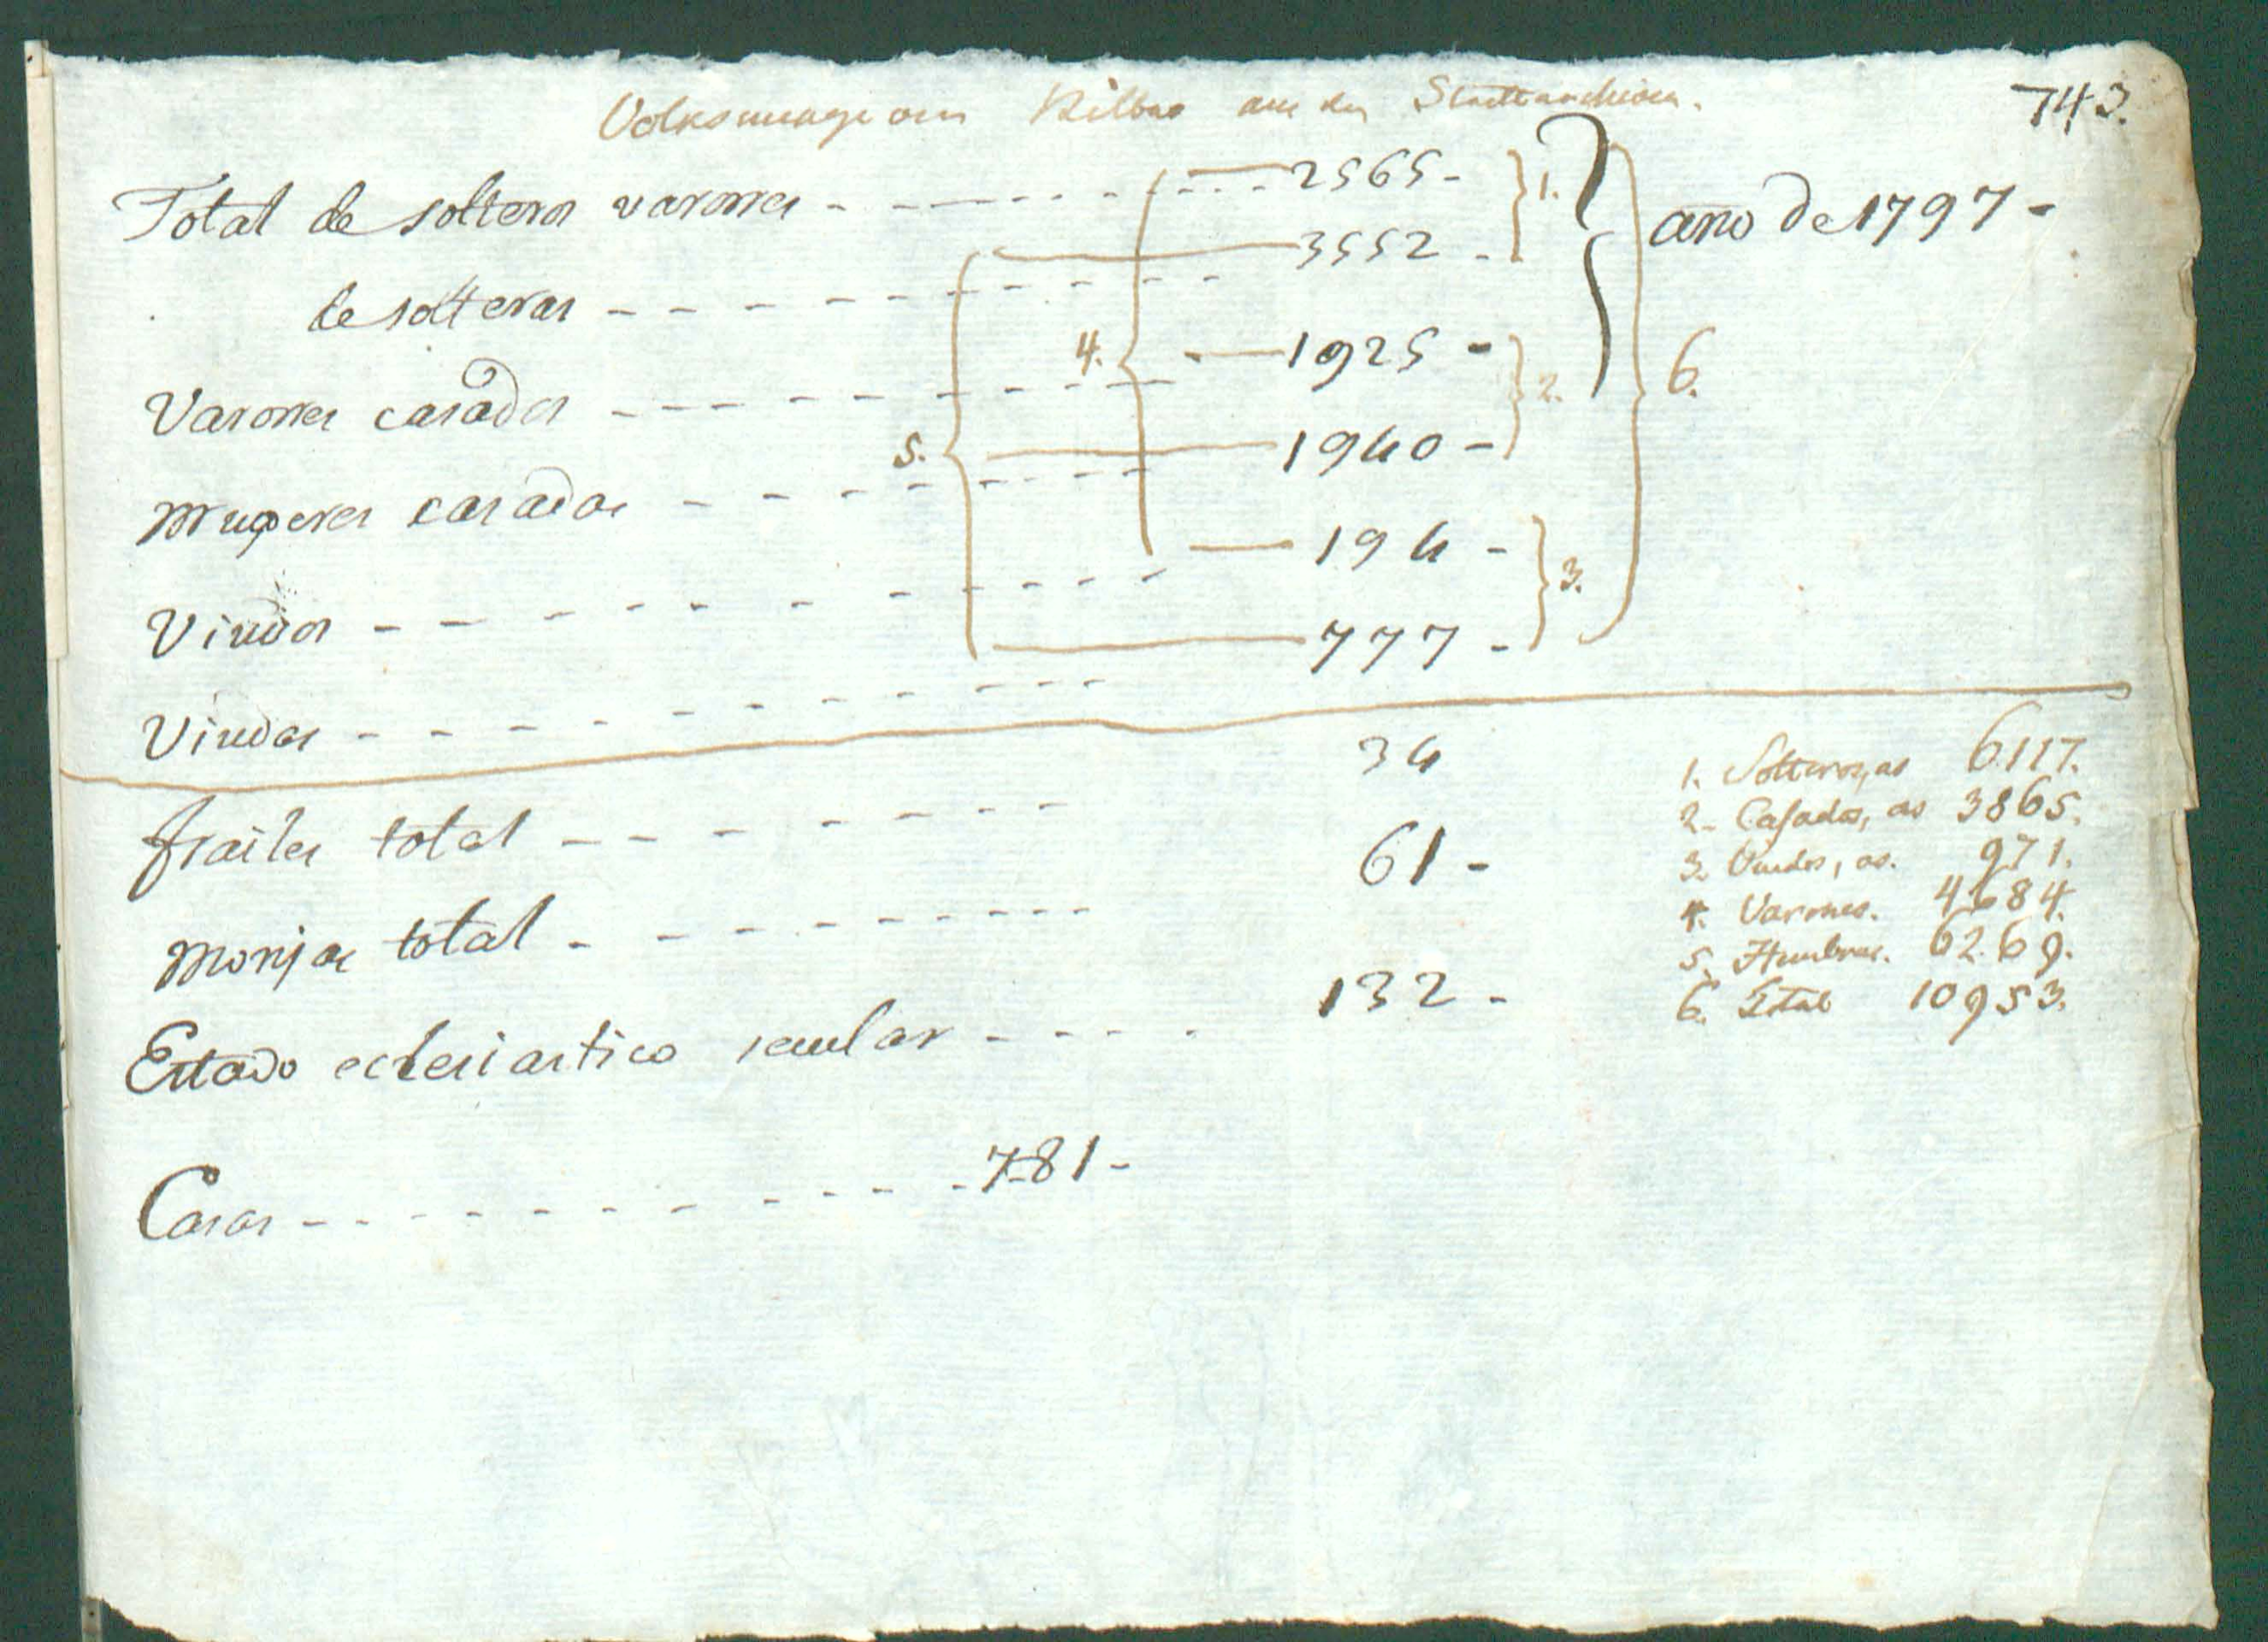 743.
Volksmenge von Bilbao aus den Stadtarchiven.
Total de solteros varones - - - - - - 2565 - } 1.
año de 1797 -
de solteras - - - - - - 3552 -
Varones casados - - - - - - 1925 - } 2.
4. 6.
Mugeres casadas - - - - - - 1940 -
5.
Viudos - - - - - - 194 - } 3.
Viudas - - - - - - 777 -
frailes total - - - - - - 34
Monjas total - - - - - - 61 -
Estado eclesiastico secular - - - - 132 -
Casas - - - - - - 781 -
1. Solteros, as 6117.
2. Casados, as 3865.
3. Viudos, as. 971.
4. Varones. 4684.
5. Hembras. 6269.
6. Total 10953.